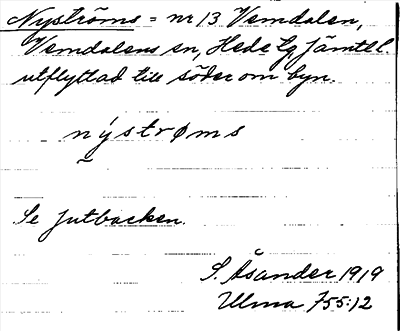 Nyströms = nr 13 Vemdalen,
Vemdalens sn, Hede tg, Jämtl
utflyttad till söder om byn.
nýstrøms
Se Jutbacken.
S. Åsander 1919
Ulma 755:12